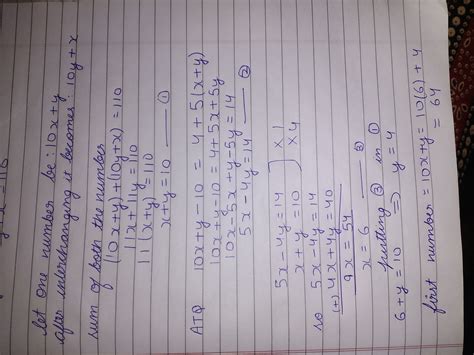 let one number be : 10x+y
after interchanging it becomes : 10y+x
sum of both the number
(10x+y)+(10y+x) = 110
11x+11y = 110
11(x+y) = 110
x+y = 10 — ①
ATQ 10x+y-10 = 4+5(x+y)
10x+y-10 = 4+5x+5y
10x-5x+y-5y=14
5x-4y=14 — ②
5x-4y=14 ] ×1
x+y=10 ] ×4
so 5x-4y=14
(+) 4x+4y=40
9x = 54
x = 6 — ③
putting ③ in ①
6+y=10 ⇒ y=4
first number = 10x+y = 10(6)+4
= 64